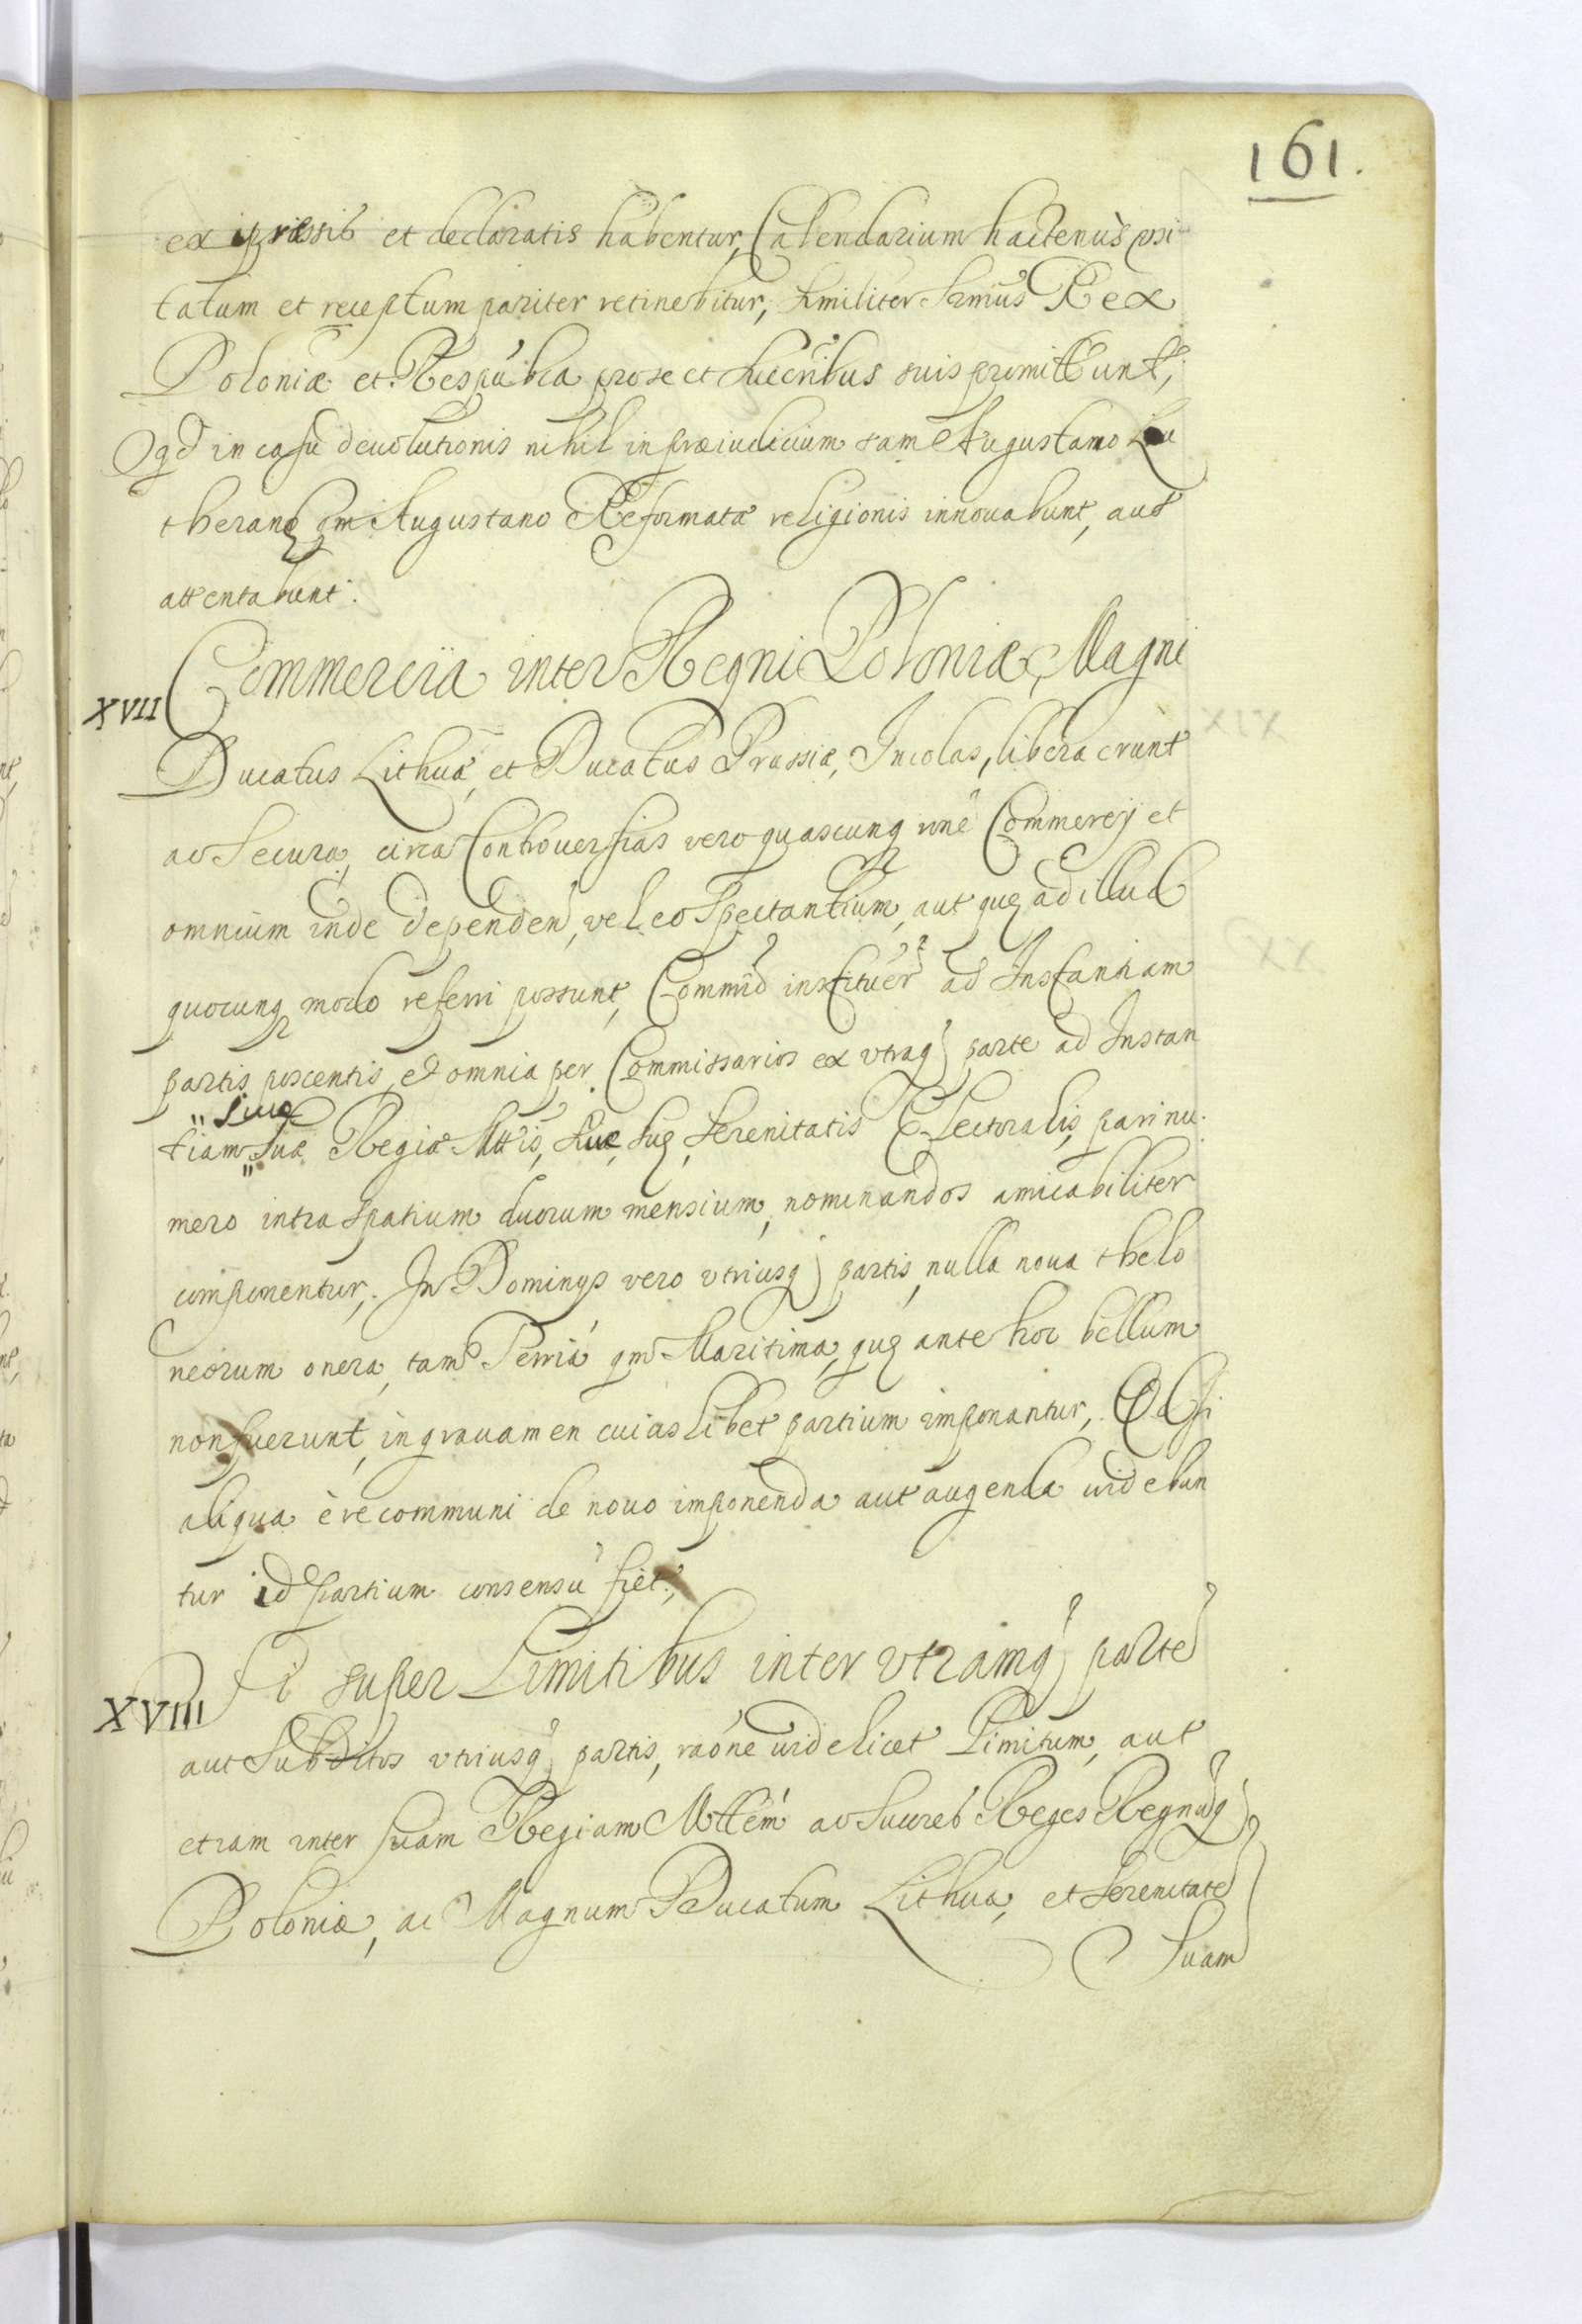 161.
expressis et declaratis habentur, Calendarium hactenùs usi
tatum et receptum pariter retinebitur, similiter Srmus Rex
Poloniæ et Respubca pro se et Succribus suis promittunt,
qd in casu deuolutionis nihil in præiudicium tam Augustano Lu
theranę qm Augustano Reformatæ religionis innouabunt, aut
attentabunt.
XVII Commercia inter Regni Poloniæ, Magni
Ducatus Lithuæ, et Ducatus Prussiæ, Incolas, libera erunt
ac Secura, circa Controuersias vero quascunq rõne Commercij et
omnium inde dependen, vel eo Spectantium, aut quę ad illud
quocunq modo referri possunt, Commid instituer ad Instantiam
partis poscentis, et omnia per Commissarios ex vtraq parte ad Instan
" Siue
tiam " Suæ Regiæ Mttis, Siue, Suę, Serenitatis Electoralis, pari nu
mero intra spatium duorum mensium, nominandos amicabiliter
componentur, In Dominys vero vtriusq partis, nulla noua thelo
neorum onera, tam Terriá qm Maritima, quę ante hoc bellum
non fuerunt, in grauamen cuiaslibet partium imponantur, Qd si
aliqua è re communi de nouo imponenda aut augenda uidebun
tur id partium consensu fiet,
XVIII Si super Limitibus inter vtramq parte
aut Subditos vtriusq partis, raone uidelicet Limitum, aut
etiam inter suam Regiam Mttem ac Succreb Reges Regnuq
Poloniæ, ac Magnum Ducatum Lithuæ, et Serenitate
Suam